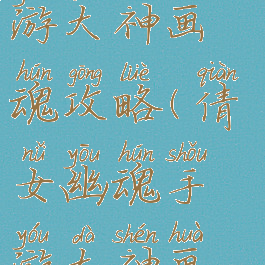 游大神画
hún gōng lüè qiàn
魂攻略(倩
nǚ yōu hún shǒu
女幽魂手
yóu dà shén huà
游大神画